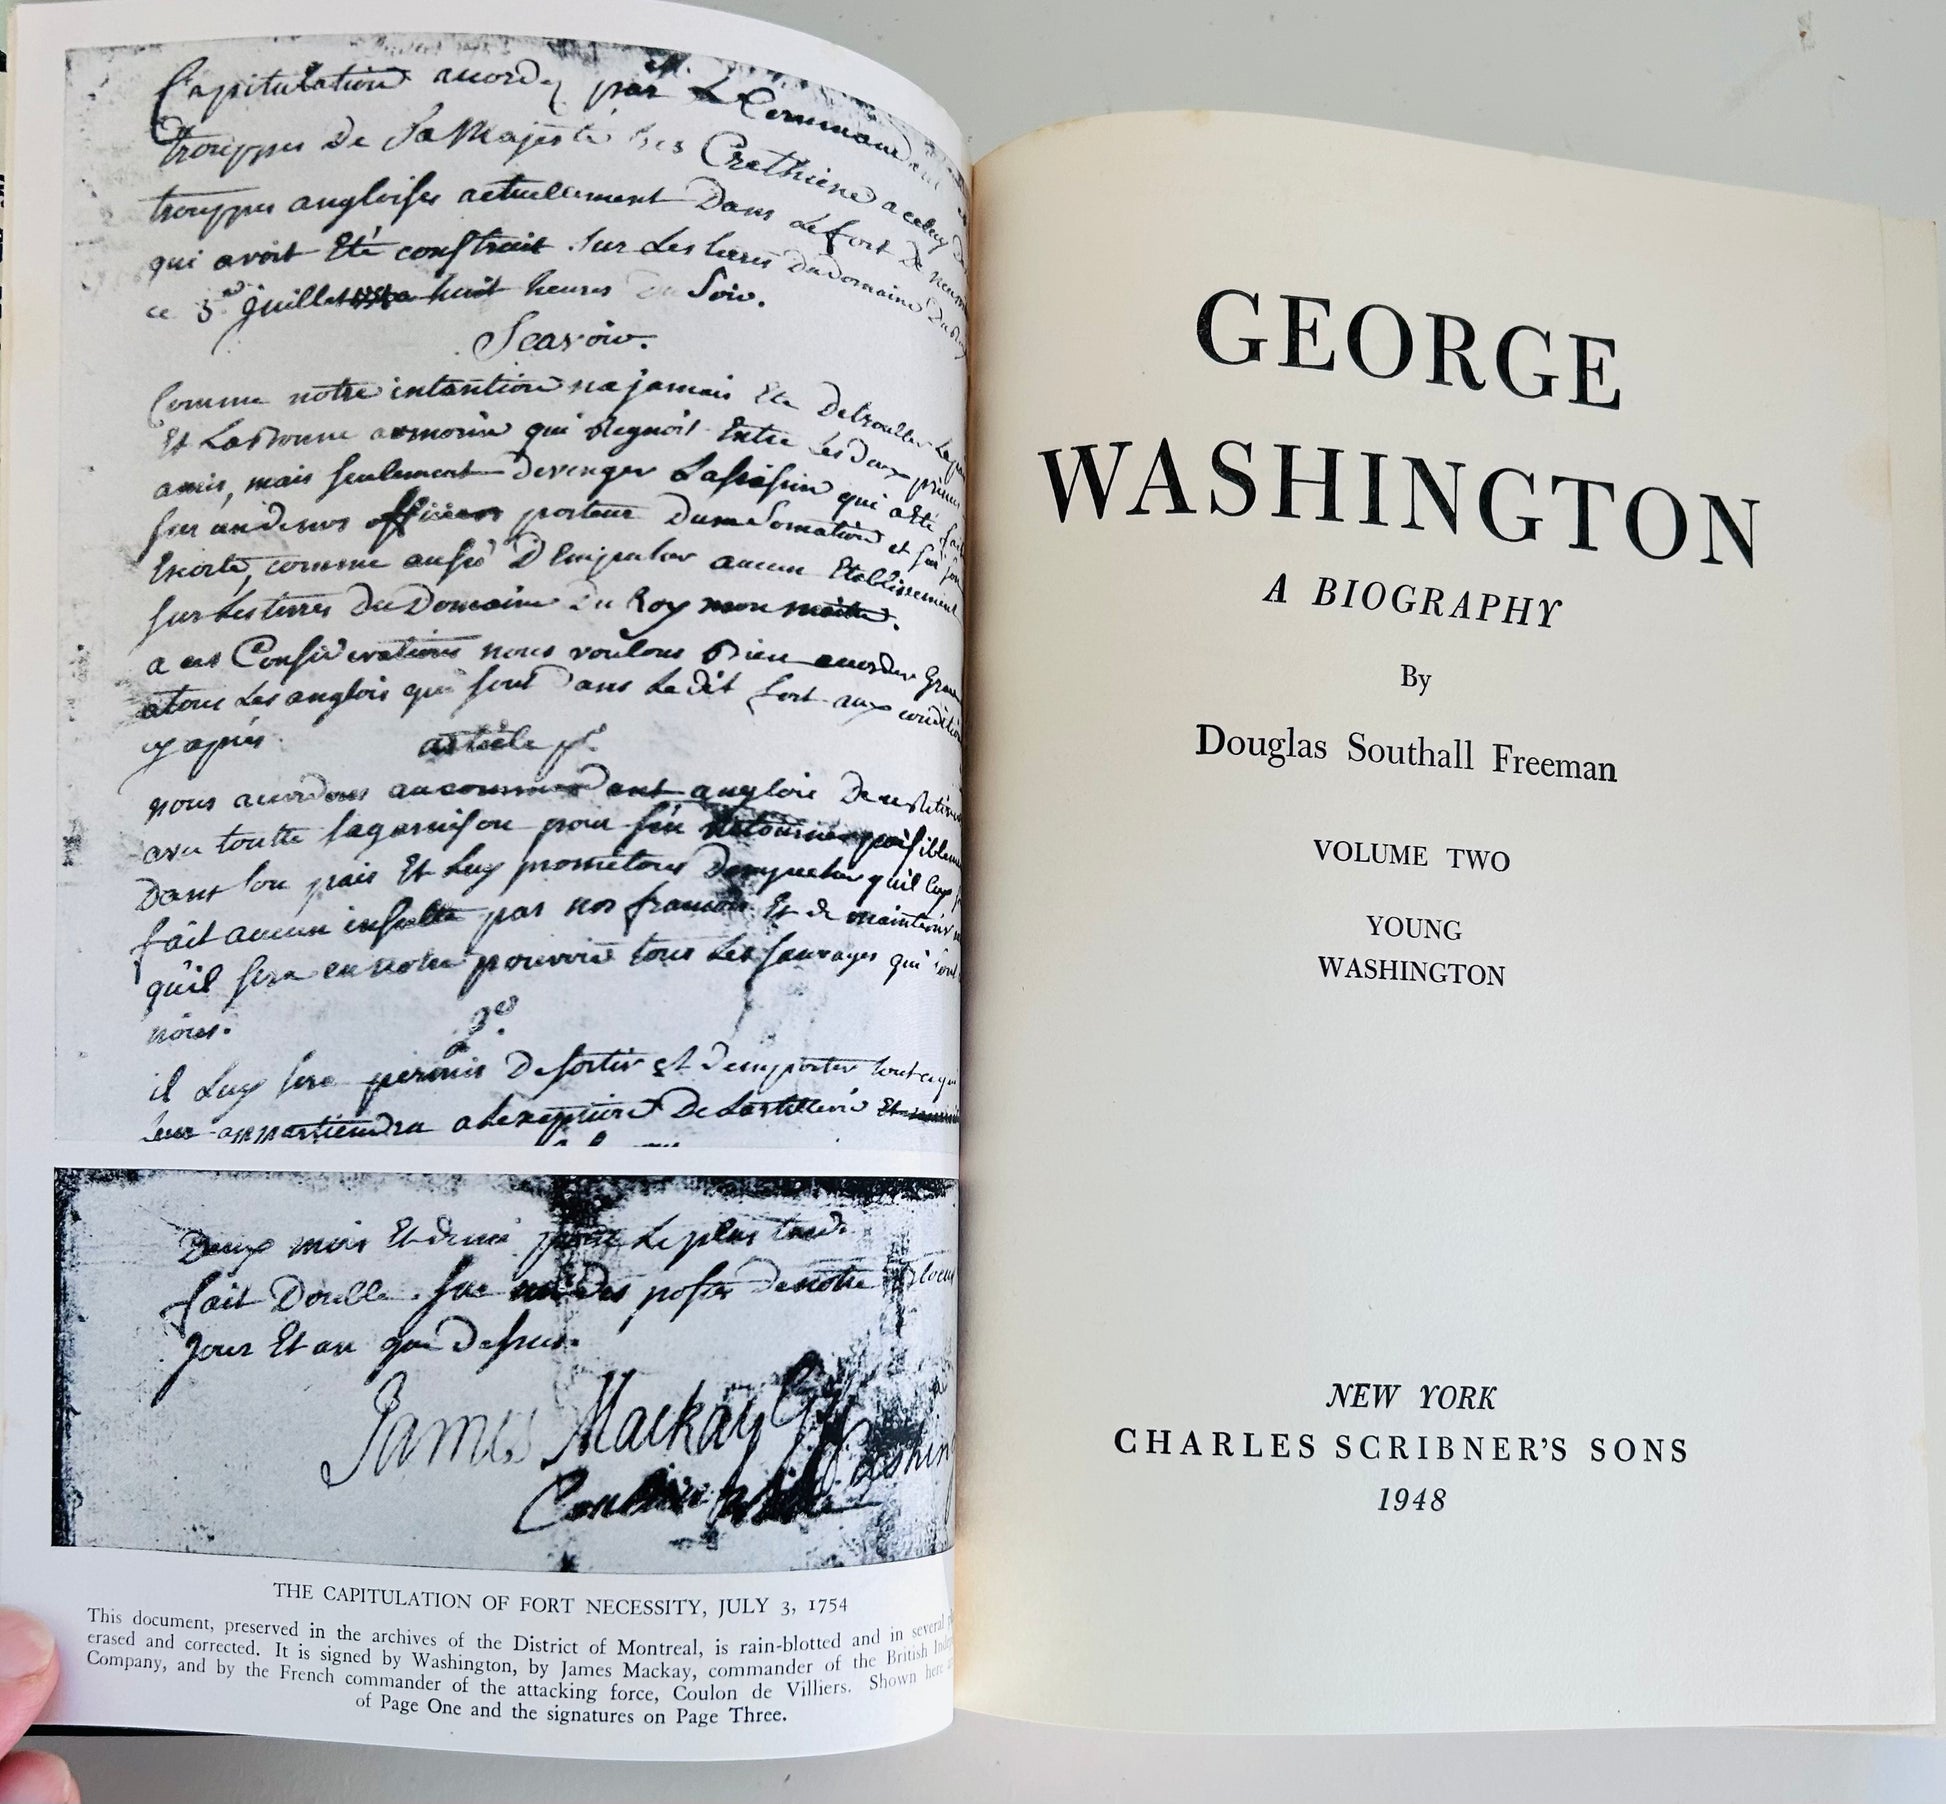 Capitulation accordez par Le Commandant
trouppes De Sa Majesté tres Crethiene a celuy
trouppes angloises actuellement Dans Le fort De
qui avoit Eté construit Sur Les terres Du Domaine Du
ce 3 juillet a huit heures Du Soir.
Scavoir.
Comme notre intantion na jamais Ete De troubler La
Et La Bonne armonie qui Regnoit Entre Les Deux princes
amis, mais Seulement De venger Lassasin qui a Eté
Sur un De nos officiers porteur Dune Somation et Sur
Escorte, comme aussi D Empecher aucun Etablissement
sur Les terres Du Domaine Du Roy mon maitre.
a ces Considerations nous voulons Bien accorder
a tous Les anglois qui sont Dans Le Dit fort aux
cy apres.
article
nous accordons au commandant anglois De
avec toutte sa garnison pour s'en Retourner
Dans son pais Et Luy prometons D'empecher qu'il Luy
fait aucun insulte par nos francois Et De maintenir
qu'il sera en notre pouvoir tous Les Sauvages qui
nous.
2
il Luy sera permis De sortir et D'emporter tout
Leur appartiendra a L exception De L artillerie
Deux mois Et demi pour Le plus tard.
fait Double sur un Des postes De notre
jour Et an que Dessus.
James Mackay
Coulon
THE CAPITULATION OF FORT NECESSITY, JULY 3, 1754
This document, preserved in the archives of the District of Montreal, is rain-blotted and in several
erased and corrected. It is signed by Washington, by James Mackay, commander of the British
Company, and by the French commander of the attacking force, Coulon de Villiers. Shown here
of Page One and the signatures on Page Three.
GEORGE
WASHINGTON
A BIOGRAPHY
By
Douglas Southall Freeman
VOLUME TWO
YOUNG
WASHINGTON
NEW YORK
CHARLES SCRIBNER'S SONS
1948